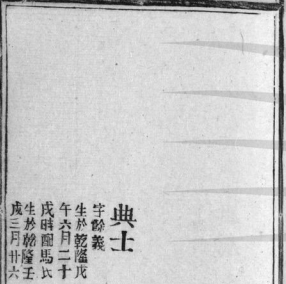 典士
字餘義
生於乾隆戊
午六月二十
戌時配馬氏
生於乾隆壬
戌三月廿六